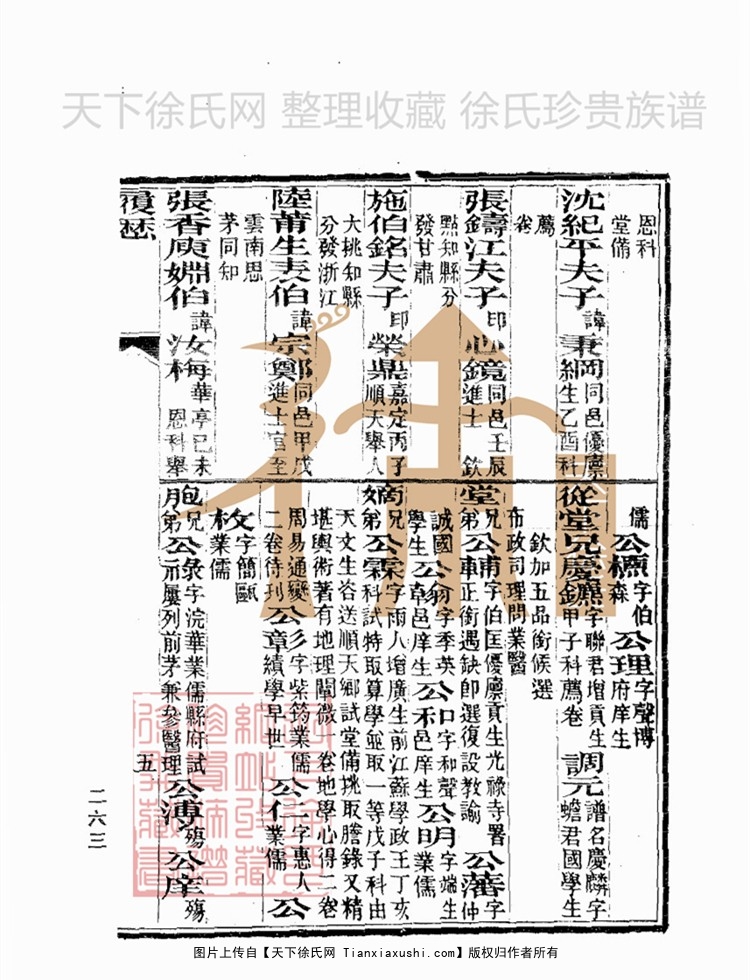 天下徐氏网 整理收藏 徐氏珍贵族谱
恩科
堂俻
沈紀平夫子 諱秉綱 同邑優廪
生乙酉科
薦
卷
張鑄江夫子 印心鏡 同邑壬辰
進士 欽
點知縣分
發甘肅
施伯銘夫子 印榮鼎 嘉定丙子
順天舉人
大挑知縣
分發浙江
陸莆生表伯 諱宗鄭 同邑甲戌
進士官至
雲南思
茅同知
張香庾姻伯 諱汝梅 華亭己未
恩科舉
履歷
儒 公 字伯森 公理 字聲博
府庠生
從堂兄慶鑣 字聯君增貢生
甲子科薦卷 調元 譜名慶麟字
蟾君國學生
欽加五品銜候選
布政司理問業醫
堂兄弟 公輔 字伯匡優廪貢生光祿寺署
正銜遇缺即選復設教諭 公藩 字仲
誠國
學生 公翰 字季英
邑庠生 公和 字和聲
邑庠生 公明 字端生
業儒
嫡兄弟 公霖 字雨人增廣生前江蘇學政王丁亥
科試特取算學並取一等戊子科由
天文生咨送順天鄉試堂備挑取謄錄又精
堪輿術著有地理闡微一卷地學心得二卷
周易通變
二卷待刊 公彡 字紫筠業儒 公章 績學早世 公仁 字惠人
業儒 公
枚 字簡甌
業儒
胞兄弟 公彖 字浣華業儒縣府試
屢列前茅兼參醫理 公溥 殤 公庠 殤
五
二六三
图片上传自【天下徐氏网 Tianxiaxushi.com】版权归作者所有